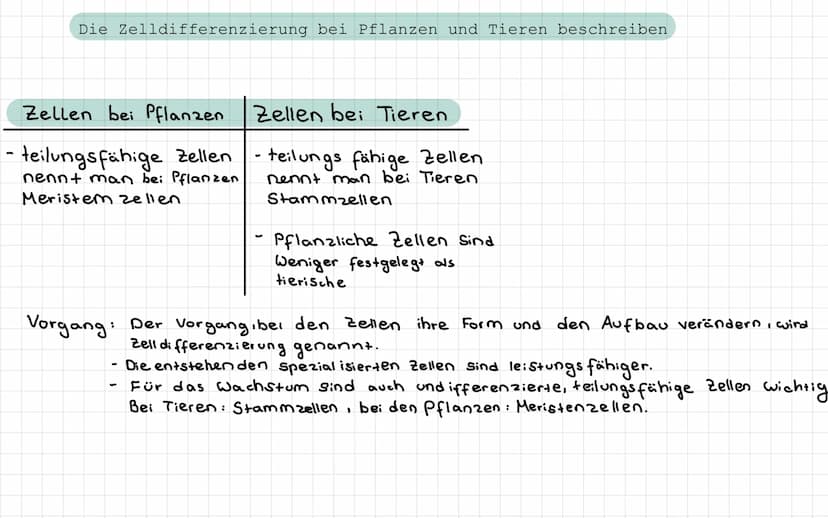 Die Zelldifferenzierung bei Pflanzen und Tieren beschreiben
Zellen bei Pflanzen
- teilungsfähige Zellen
nennt man bei Pflanzen
Meristemzellen
Zellen bei Tieren
- teilungs fähige Zellen
nennt man bei Tieren
Stammzellen
- Pflanzliche Zellen sind
Weniger festgelegt als
tierische
Vorgang: Der Vorgang, bei den Zellen ihre Form und den Aufbau verändern, wird
Zelldifferenzierung genannt.
- Die entstehenden spezialisierten Zellen sind leistungsfähiger.
- Für das Wachstum sind auch undifferenzierte, teilungsfähige Zellen wichtig
Bei Tieren: Stammzellen, bei den Pflanzen: Meristenzellen.